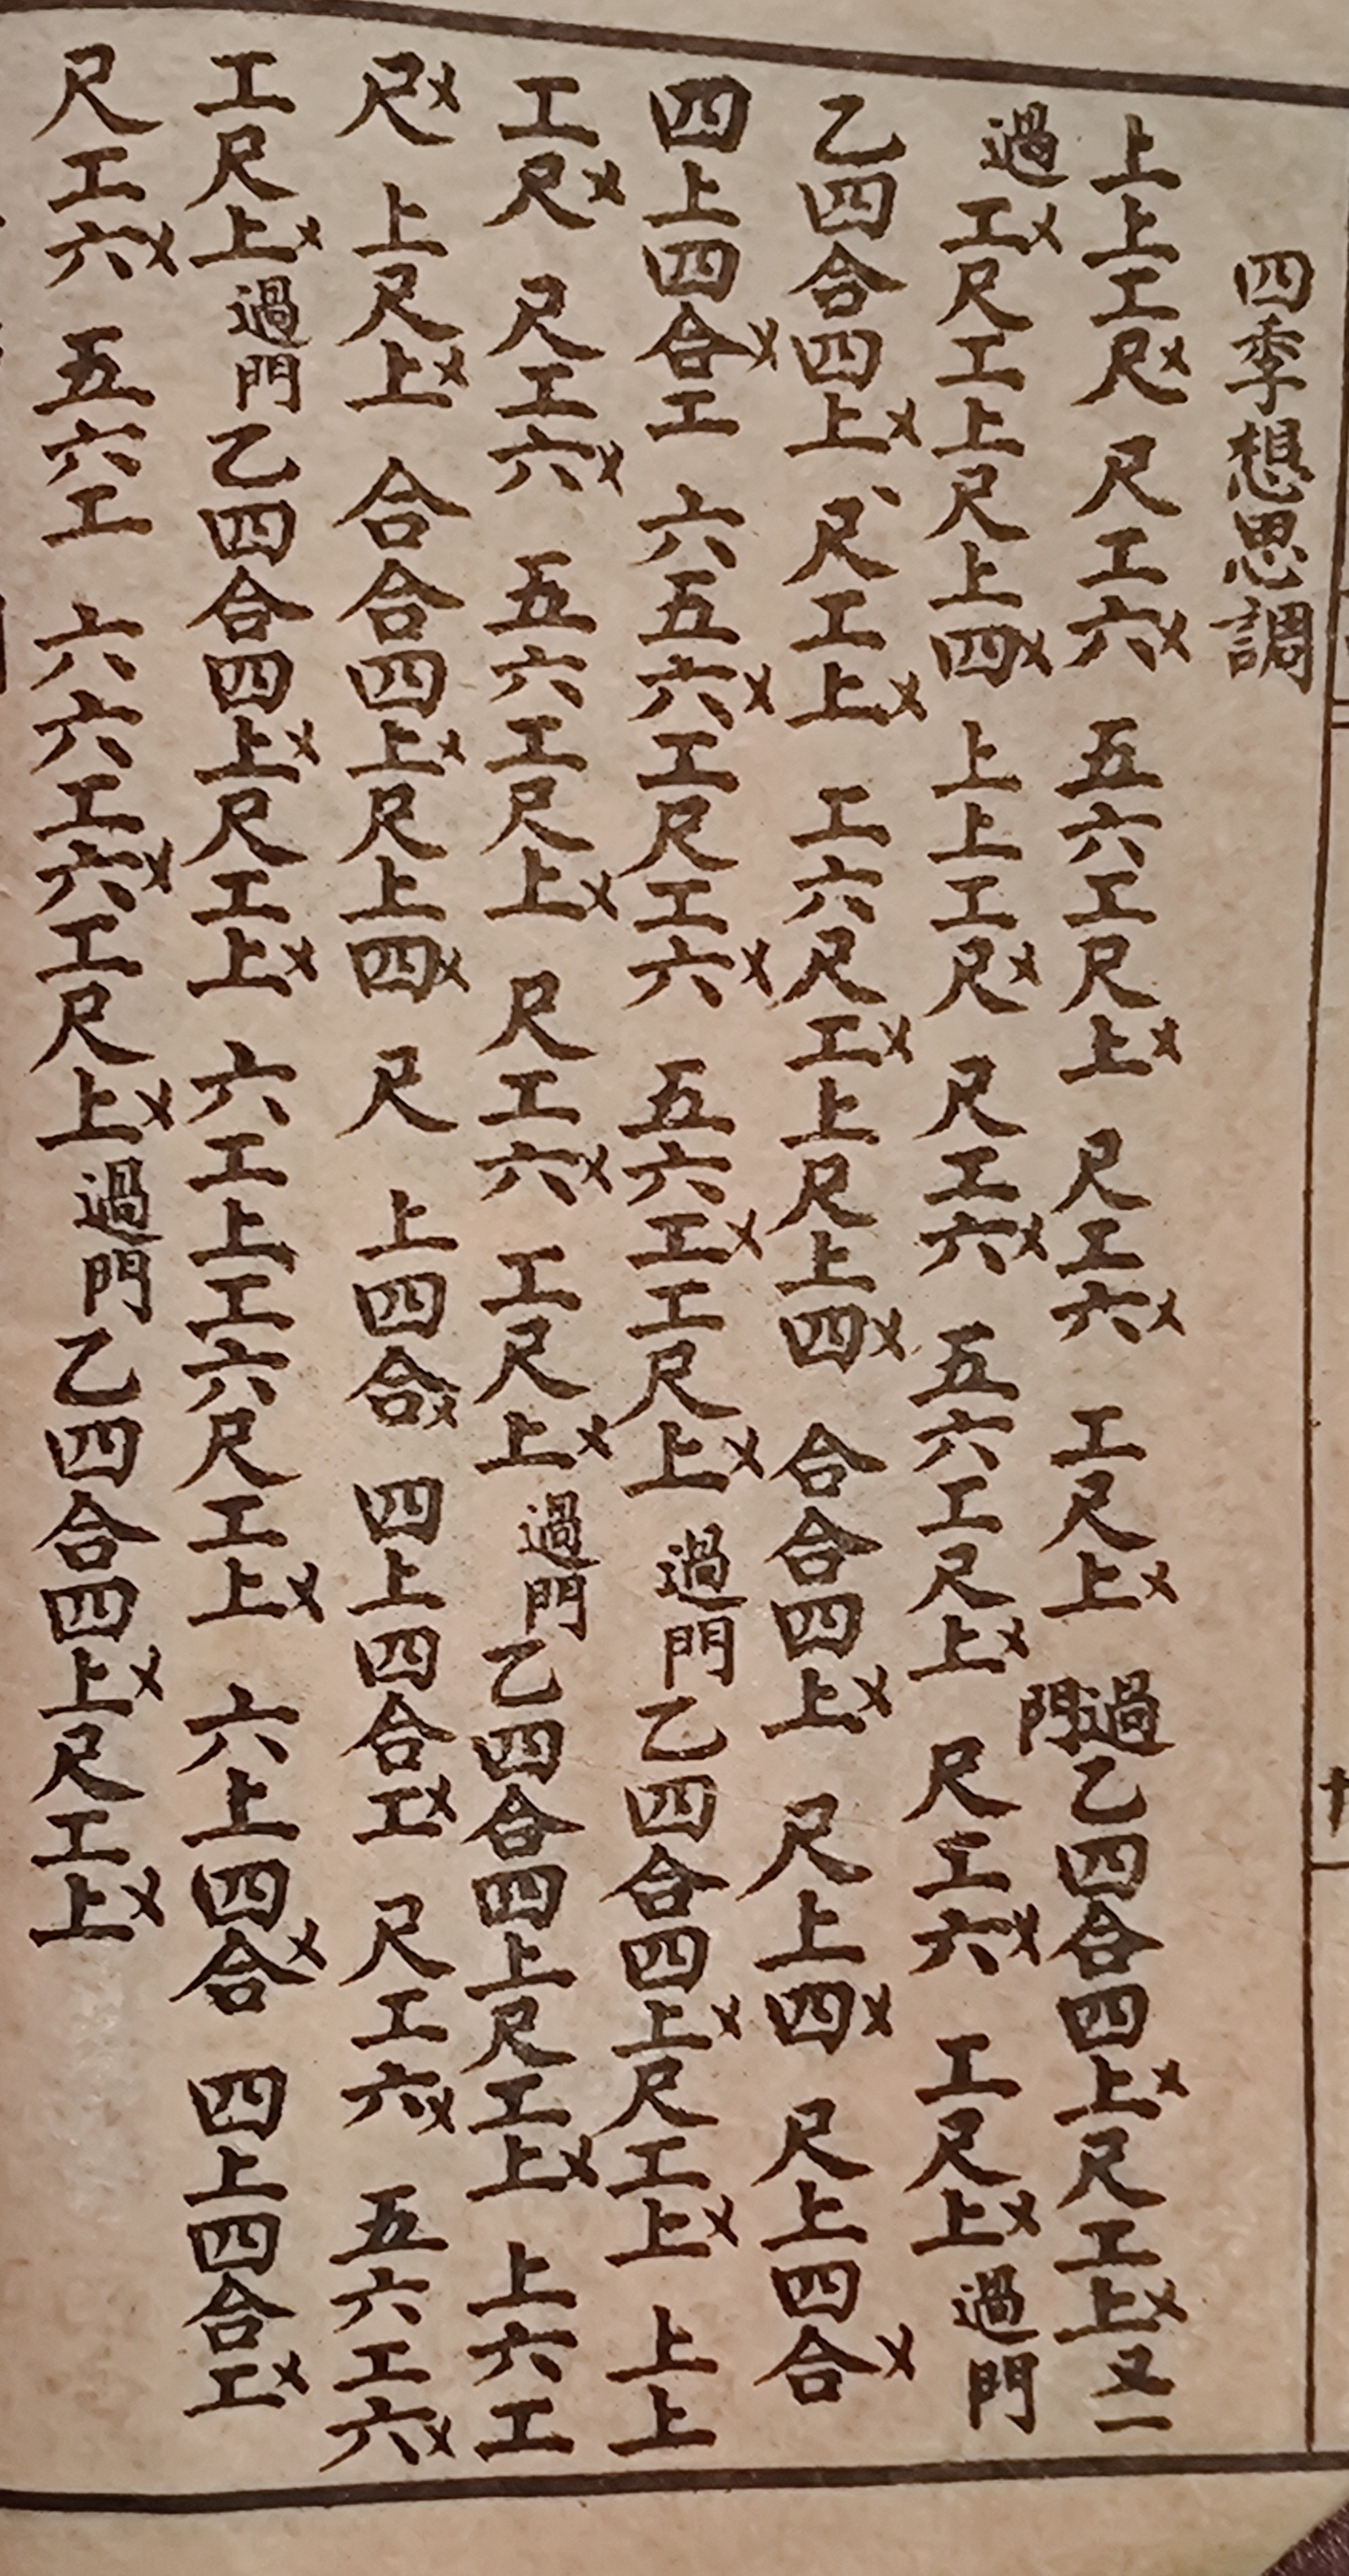 四季想思調
上上工尺㐅 尺工六㐅 五六工尺上㐅 尺工六㐅 工尺上㐅 過門乙四合四上㐅尺工上㐅又一
過工㐅尺工上尺上四㐅 上上工尺㐅 尺工六㐅 五六工尺上㐅 尺工六㐅 工尺上㐅 過門
乙四合四上㐅 尺工上㐅 工六尺工㐅上尺上四㐅 合合四上㐅 尺上四㐅 尺上四合㐅
四上四合㐅工 六五六㐅工尺工六㐅 五六工㐅工尺上㐅 過門乙四合四上㐅尺工上㐅 上上
工尺㐅 尺工六㐅 五六工尺上㐅 尺工六㐅 工尺上㐅 過門乙四合四上尺工上㐅 上六工
尺㐅 上尺上㐅 合合四上㐅尺上四㐅 尺 上四合㐅 四上四合工㐅 尺工六㐅 五六工六㐅
工尺上㐅 過門乙四合四上㐅尺工上㐅 六工上工六尺工上㐅 六上四合㐅 四上四合工㐅
尺工六㐅 五六工 六六工六㐅工尺上㐅 過門乙四合四上㐅尺工上㐅